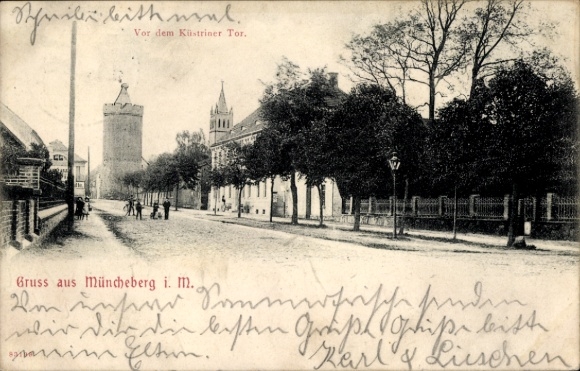 Schreib' bitte mal.
Vor dem Küstriner Tor.
Gruss aus Müncheberg i. M.
Von unserer Sommerfrische senden
wir Dir die besten Grüße. Grüße bitte
meine Eltern. Karl & Lieschen